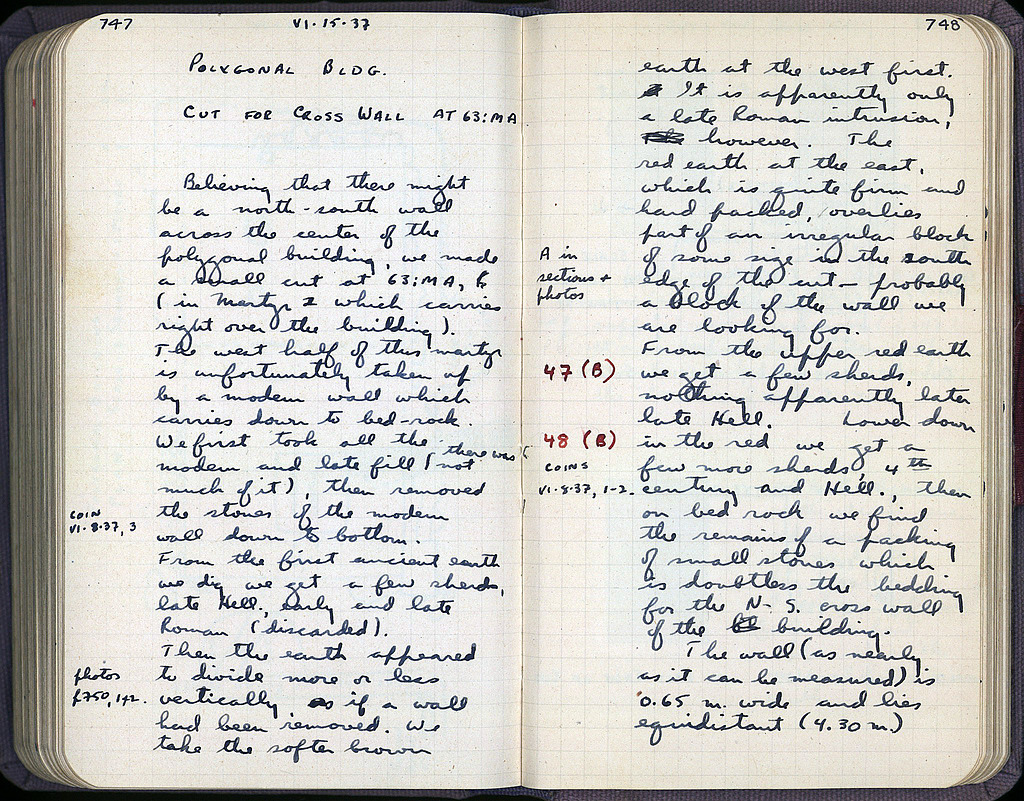 747
VI·15·37
POLYGONAL BLDG.
CUT FOR CROSS WALL AT 63:MA
Believing that there might
be a north-south wall
across the center of the
polygonal building, we made
a small cut at 63:MA,
(in Martyr 2 which carries
right over the building).
The west half of this martyr
is unfortunately taken up
by a modern wall which
carries down to bed-rock.
We first took all the
modern and late fill (there was not
much of it), then removed
COIN
VI·8·37, 3
the stones of the modern
wall down to bottom.
From the first ancient earth
we dig we get a few sherds,
late Hell., early and late
Roman (discarded).
Then the earth appeared
photos
p.750, 1+2.
to divide more or less
vertically as if a wall
had been removed. We
take the softer brown
748
earth at the west first.
It is apparently only
a late Roman intrusion,
however. The
red earth at the east,
which is quite firm and
hard packed, overlies
part of an irregular block
A in
sections +
photos
of some size in the south
edge of the cut — probably
a block of the wall we
are looking for.
From the upper red earth
47 (B)
we get a few sherds,
nothing apparently later
late Hell. Lower down
48 (B)
in the red we get a
COINS
VI·8·37, 1-2.
few more sherds, 4th
century and Hell., then
on bed rock we find
the remains of a packing
of small stones which
is doubtless the bedding
for the N-S. cross wall
of the building.
The wall (as nearly
as it can be measured) is
0.65 m. wide and lies
equidistant (4.30 m.)